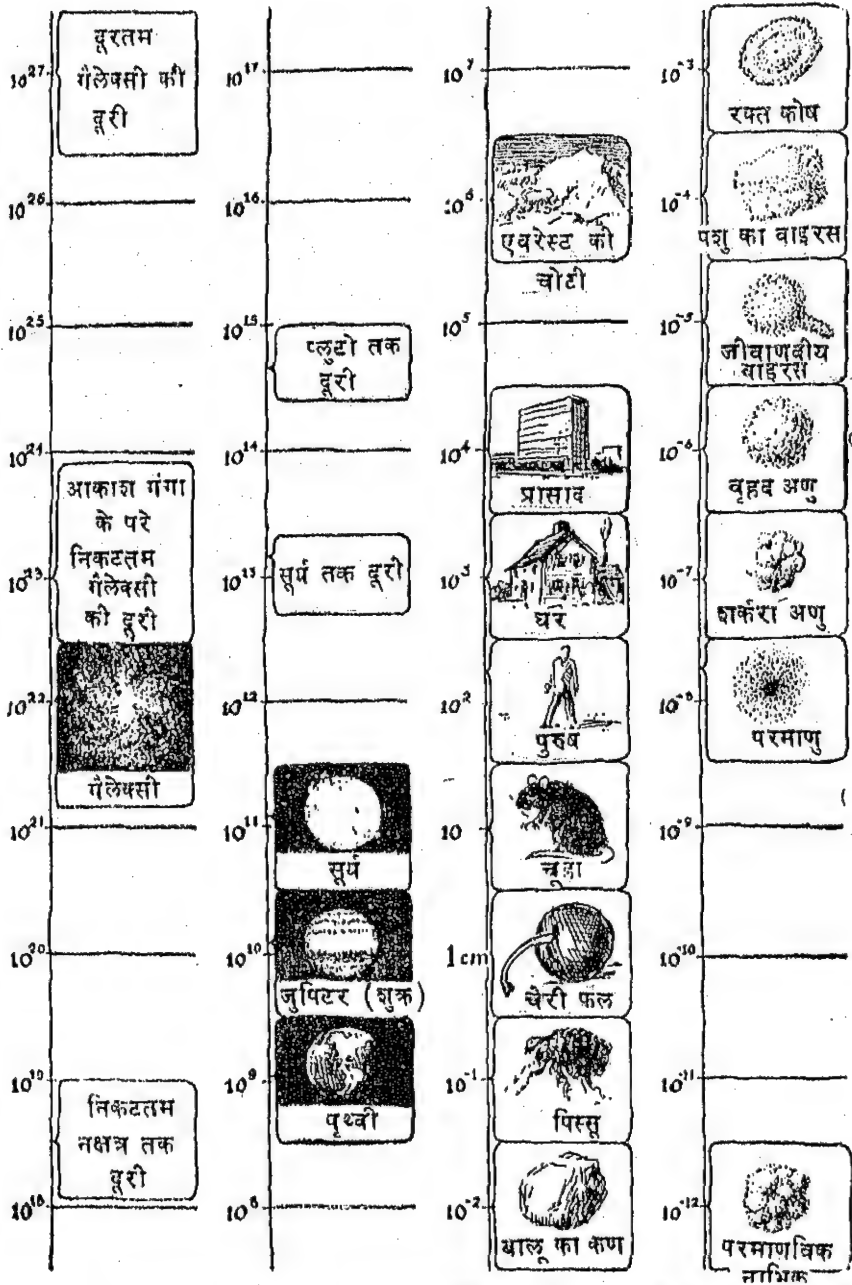 10²⁷
दूरतम
गैलेक्सी की
दूरी
10²⁶
10²⁵
10²⁴
आकाश गंगा
के परे
निकटतम
गैलेक्सी
की दूरी
10²³
10²²
गैलेक्सी
10²¹
10²⁰
10¹⁹
निकटतम
नक्षत्र तक
दूरी
10¹⁸
10¹⁷
10¹⁶
10¹⁵
प्लुटो तक
दूरी
10¹⁴
10¹³
सूर्य तक दूरी
10¹²
10¹¹
सूर्य
10¹⁰
जुपिटर (शुक्र)
10⁹
पृथ्वी
10⁸
10⁷
10⁶
एवरेस्ट की
चोटी
10⁵
10⁴
प्रासाद
10³
घर
10²
पुरुष
10
चूहा
1 cm
चेरी फल
10⁻¹
पिस्सू
10⁻²
बालू का कण
10⁻³
रक्त कोष
10⁻⁴
पशु का वाइरस
10⁻⁵
जीवाणवीय
वाइरस
10⁻⁶
वृहद अणु
10⁻⁷
शर्करा अणु
10⁻⁸
परमाणु
10⁻⁹
10⁻¹⁰
10⁻¹¹
10⁻¹²
परमाणविक
नाभिक